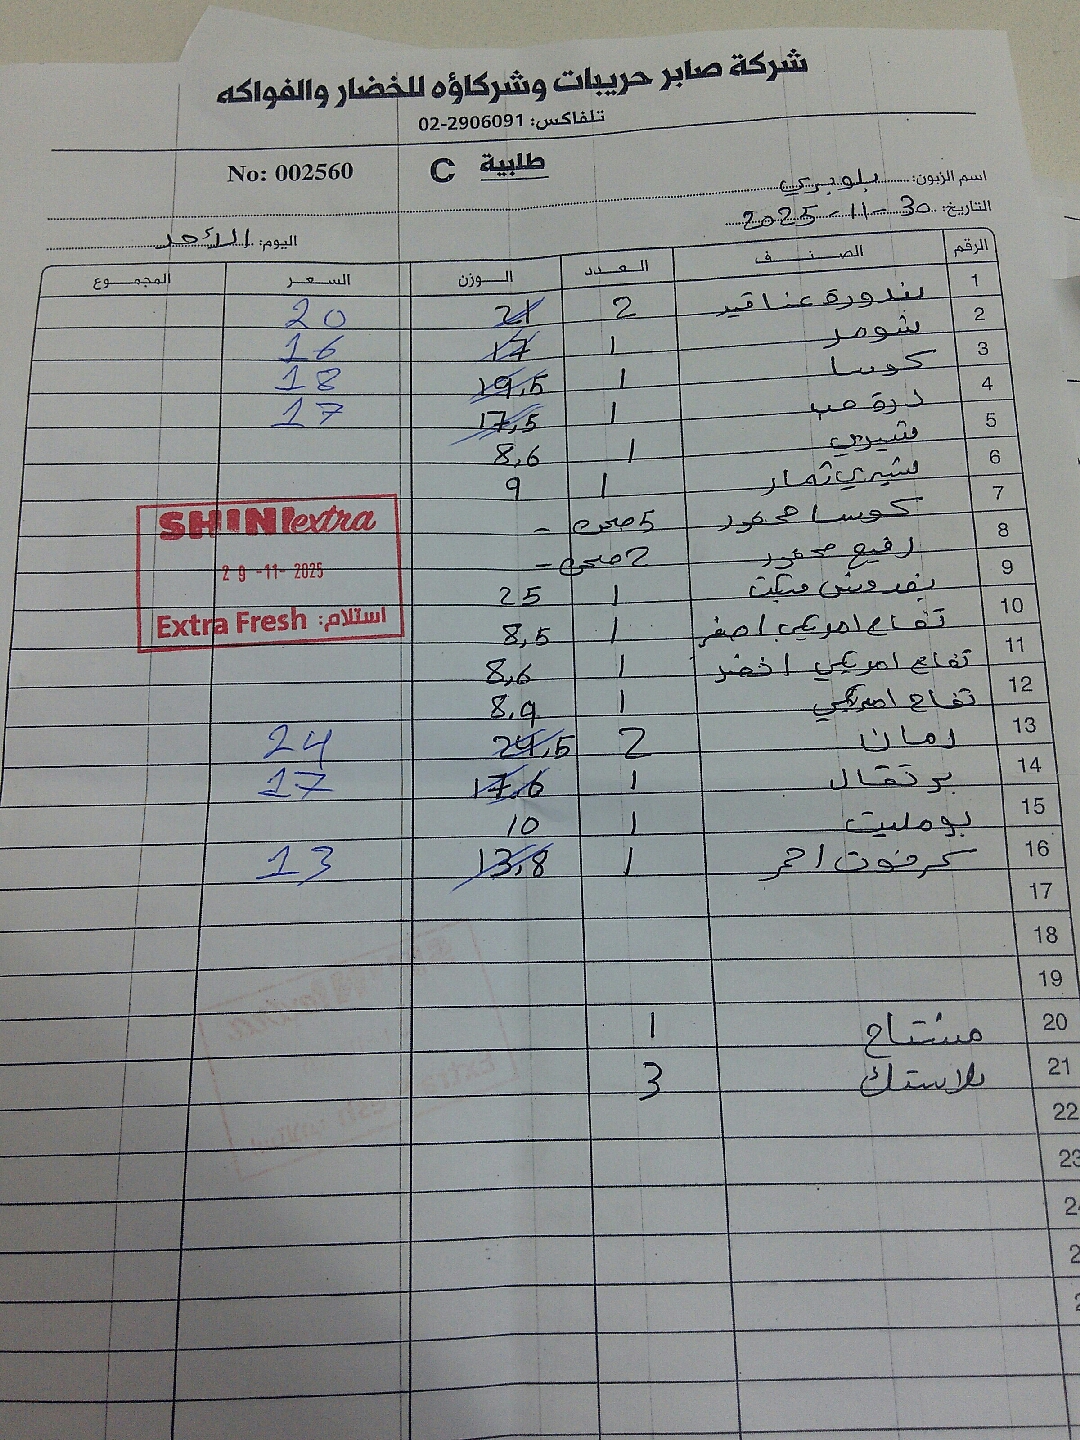 شركة صابر حريبات وشركاؤه للخضار والفواكه
تلفاكس: 02-2906091
No: 002560 C طلبية
اسم الزبون: بلوبري
التاريخ: 30-11-2025
اليوم: الأحد
الرقم الصنف العدد الوزن السعر المجموع
1 بندورة عناقيد 2 21 20
2 شومر 1 17 16
3 كوسا 1 19,5 18
4 ذرة حب 1 17,5 17
5 شيري 1 8,6
6 شيري تمار 1 9
7 كوسا محفور 5 صحن -
8 رفيع محفور 2 صحن -
9 1 25
10 تفاح امريكي اصفر 1 8,5
11 تفاح امريكي اخضر 1 8,6
12 تفاح امريكي 1 8,9
13 رمان 2 24,5 24
14 برتقال 1 17,6 17
15 بومليت 1 10
16 كرفوت احمر 1 13,8 13
17
18
19
20 مشتاح 1
21 بلاستك 3
22
23
SHINI extra
29-11-2025
Extra Fresh استلام: